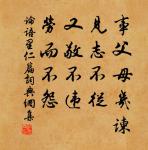 事父母幾諫
見志不從
又敬不違
勞而不怨
論語里仁篇詞典網集